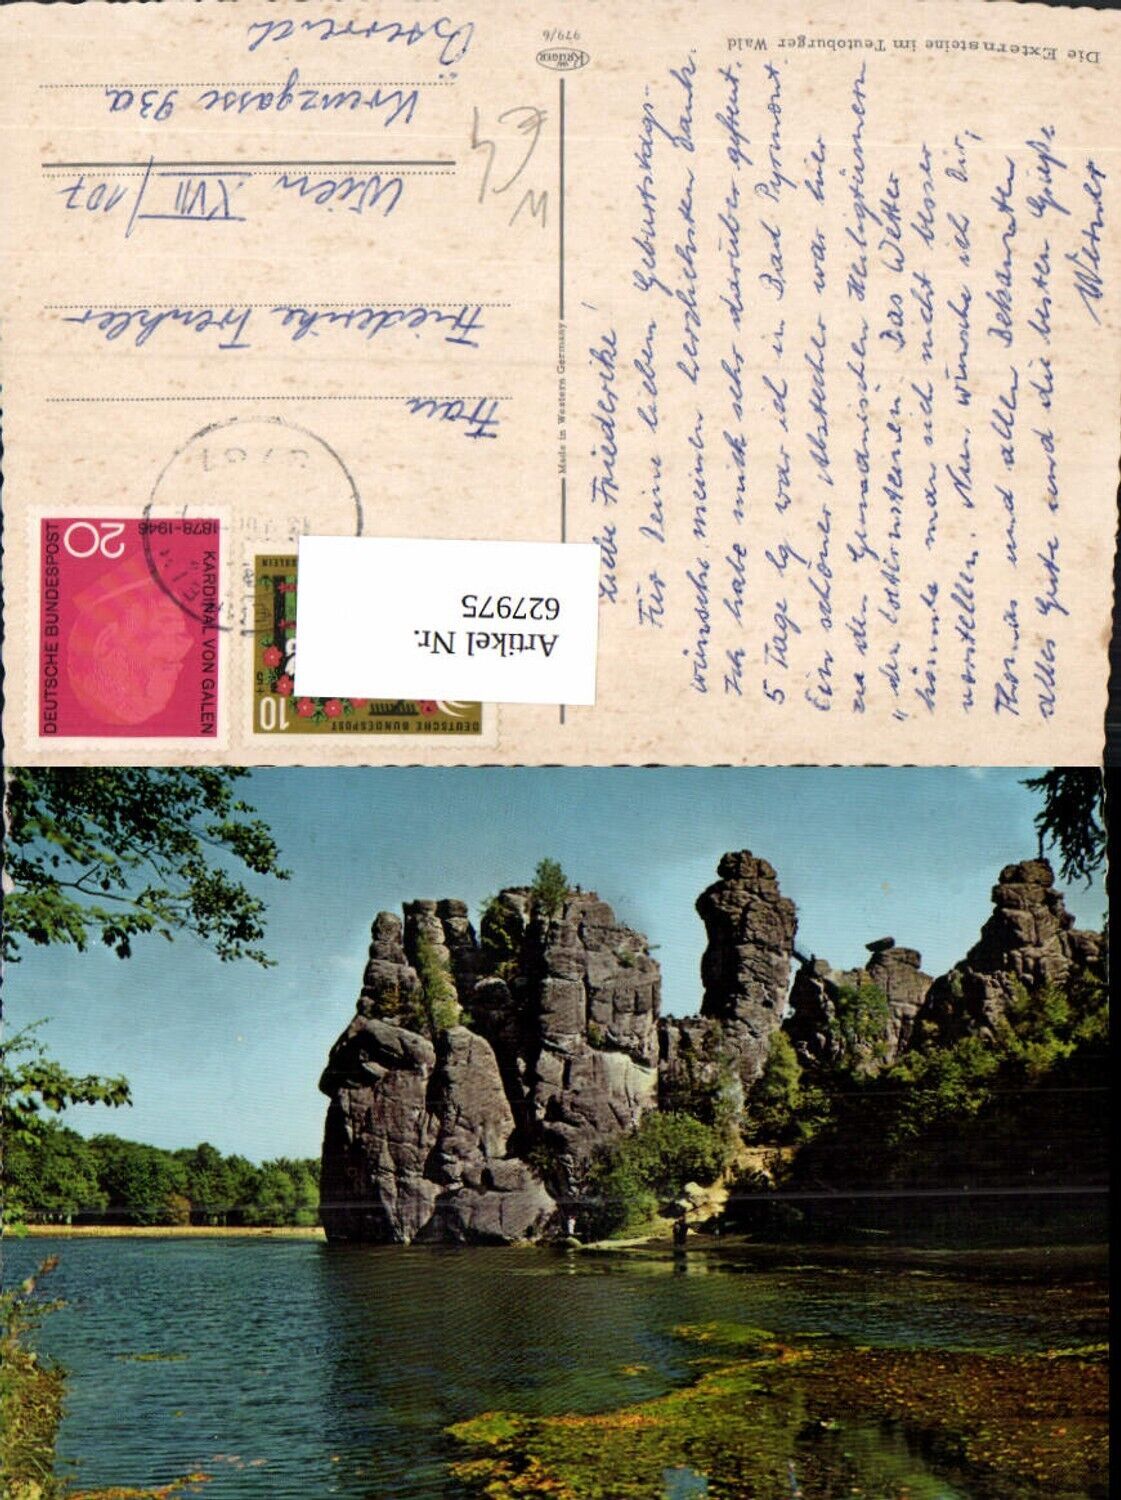 Die Externsteine im Teutoburger Wald
KRÜGER
979/6
Made in Western Germany
Liebe Friederike!
Für Deine lieben Geburtstags-
wünsche meinen herzlichsten Dank.
Ich habe mich sehr darüber gefreut.
5 Tage lg war ich in Bad Pyrmont.
Ein schöner Abstecher war hier
zu den Germanischen Heiligtümern
"den Externsteinen. Das Wetter
könnte man sich nicht besser
vorstellen. Nun, wünsche ich Dir,
Thomas und allen Bekannten
alles Gute und die besten Grüße
Frau
Friederike Trenkler
Wien XVII/107
Kranzgasse 93a
Österreich
W
€4
Artikel Nr.
627975
DEUTSCHE BUNDESPOST
20
KARDINAL VON GALEN
1878-1946
DEUTSCHE BUNDESPOST
10
+5